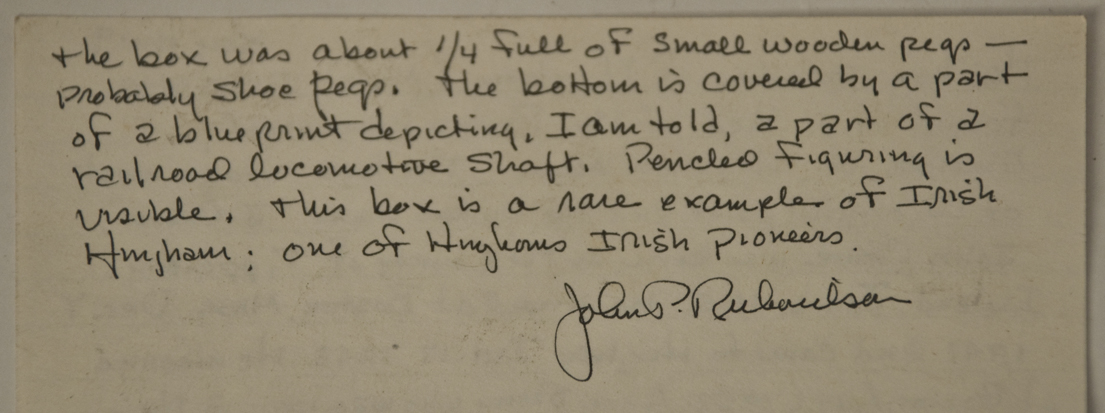 the box was about 1/4 full of small wooden pegs —
probably shoe pegs. The bottom is covered by a part
of a blueprint depicting, I am told, a part of a
railroad locomotive shaft. Penciled figuring is
visible. This box is a rare example of Irish
Hingham; one of Hinghams Irish pioneers.
John P. Richardson